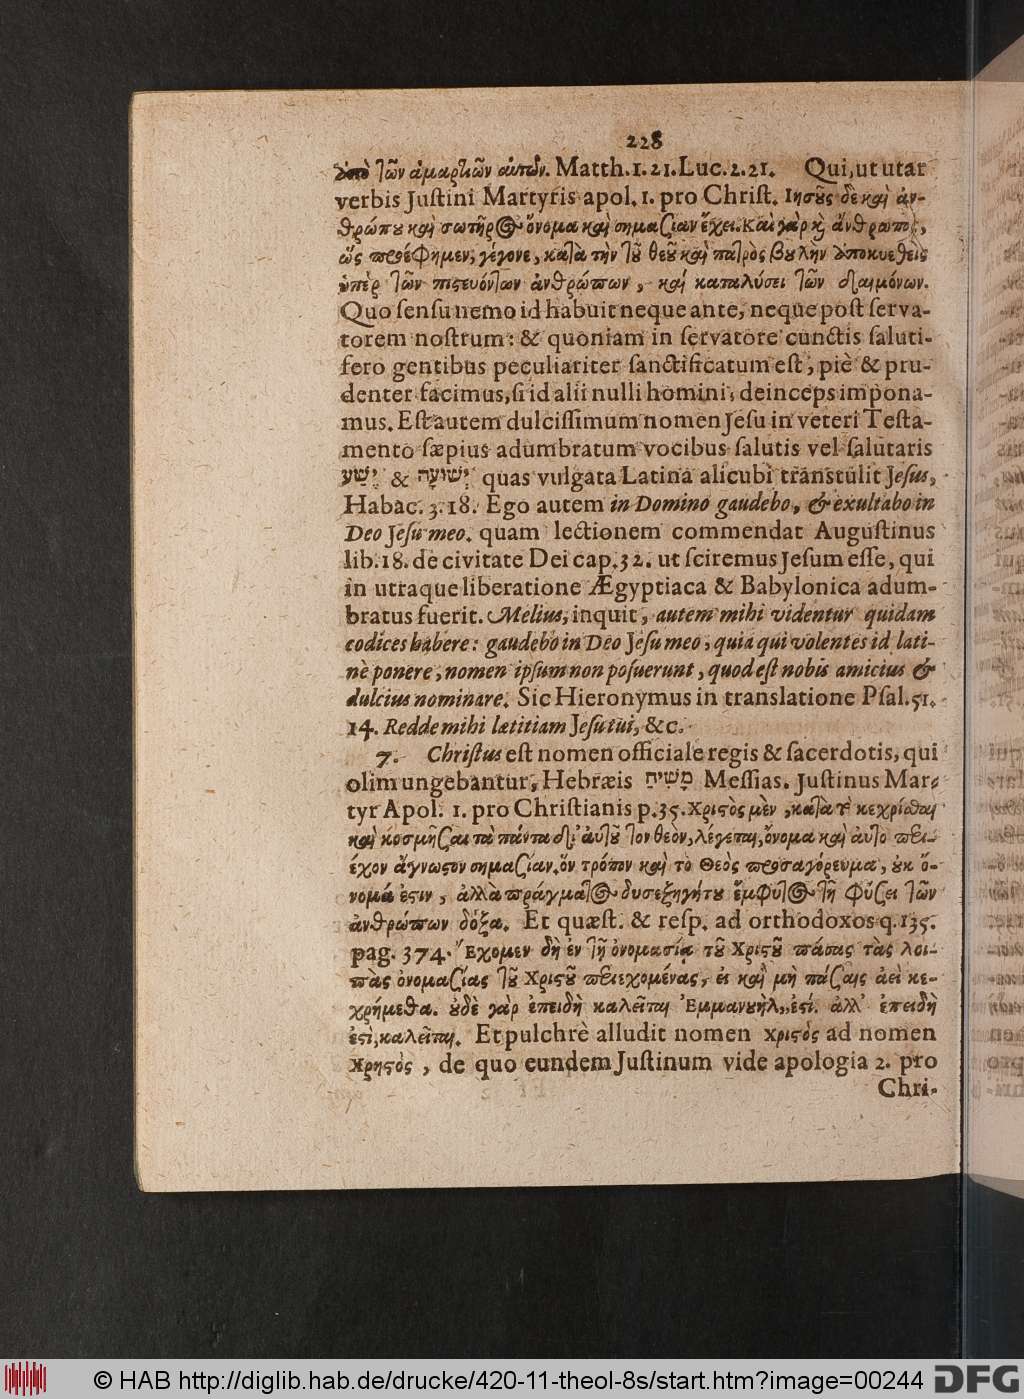 228
ἀπὸ τῶν ἁμαρτιῶν αὐτῶν. Matth. 1. 21. Luc. 2. 21. Qui, ut utar
verbis Justini Martyris apol. 1. pro Christ. Ιησοῦς δὲ καὶ ἀν-
θρώπου καὶ σωτῆρος ὄνομα καὶ σημασίαν ἔχει. Καὶ γὰρ καὶ ἄνθρωπος,
ὡς προέφημεν, γέγονε, κατὰ τὴν τοῦ θεοῦ καὶ πατρὸς βουλὴν ἀποκυεθεὶς
ὑπὲρ τῶν πιστευόντων ἀνθρώπων, καὶ καταλύσει τῶν δαιμόνων.
Quo sensu nemo id habuit neque ante, neque post serva-
torem nostrum: & quoniam in servatore cunctis saluti-
fero gentibus peculiariter sanctificatum est, piè & pru-
denter facimus, si id alii nulli homini, deinceps impona-
mus. Est autem dulcissimum nomen Jesu in veteri Testa-
mento sæpius adumbratum vocibus salutis vel salutaris
יֵשַׁע & יְשׁוּעָה quas vulgata Latina alicubi transtulit Jesus,
Habac. 3. 18. Ego autem in Domino gaudebo, & exultabo in
Deo Jesu meo. quam lectionem commendat Augustinus
lib. 18. de civitate Dei cap. 32. ut sciremus Jesum esse, qui
in utraque liberatione Ægyptiaca & Babylonica adum-
bratus fuerit. Melius, inquit, autem mihi videntur quidam
codices habere: gaudebo in Deo Jesu meo, quia qui volentes id lati-
nè ponere, nomen ipsum non posuerunt, quod est nobis amicius &
dulcius nominare. Sic Hieronymus in translatione Psal. 51.
14. Redde mihi lætitiam Jesu tui, &c.
7. Christus est nomen officiale regis & sacerdotis, qui
olim ungebantur, Hebræis מָשִׁיחַ Messias. Justinus Mar-
tyr Apol. 1. pro Christianis p. 35. Χριστὸς μὲν, κατὰ τὸ κεχρίσθαι
καὶ κοσμῆσαι τὰ πάντα δι' αὐτοῦ τὸν θεὸν, λέγεται, ὄνομα καὶ αὐτὸ περι-
έχον ἄγνωστον σημασίαν. ὃν τρόπον καὶ τὸ Θεὸς προσαγόρευμα, οὐκ ὄ-
νομά ἐστιν, ἀλλὰ πράγματος δυσεξηγήτου ἔμφυτος τῇ φύσει τῶν
ἀνθρώπων δόξα. Et quæst. & resp. ad orthodoxos q. 135.
pag. 374. Ἔχομεν δὴ ἐν τῇ ὀνομασίᾳ τοῦ Χριστοῦ πάσας τὰς λοι-
πὰς ὀνομασίας τοῦ Χριστοῦ περιεχομένας, εἰ καὶ μὴ πάσαις ἀεὶ κε-
χρήμεθα. οὐδὲ γὰρ ἐπειδὴ καλεῖται Ἐμμανουὴλ, ἐστί. ἀλλ' ἐπειδὴ
ἐστὶ, καλεῖται. Et pulchrè alludit nomen χριστός ad nomen
χρηστὸς, de quo eundem Justinum vide apologia 2. pro
Chri-
© HAB http://diglib.hab.de/drucke/420-11-theol-8s/start.htm?image=00244
DFG